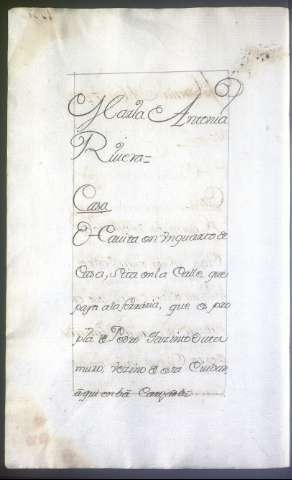 Maria Antonia
Rivera=
Casa
Havita en un quarto de
Casa, sita en la Calle que
pasa a la , que es pro
pia de Pedro Jazinto
muro, vezino de esta Ciudad,
aqui en ba